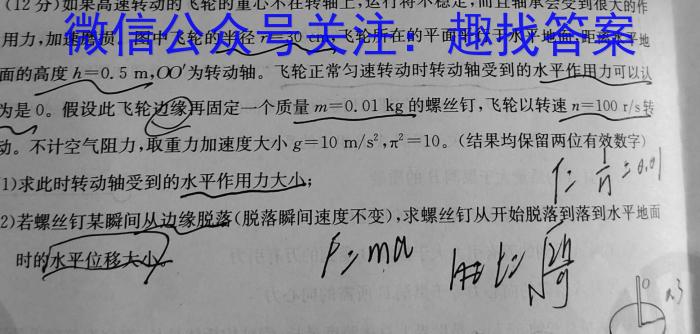 (12分)如果高速转动的飞轮的重心不在转轴上,运行将不稳定,而且轴承会受到很大的作
用力,加速磨损。图中飞轮的半径r=30 cm,飞轮所在的平面平行于水平地面,距该水平地
微信公众号关注：趣找答案
面的高度h=0.5 m,OO′为转动轴。飞轮正常匀速转动时转动轴受到的水平作用力可以认
为是0。假设此飞轮边缘再固定一个质量m=0.01 kg的螺丝钉,飞轮以转速n=100 r/s转
动。不计空气阻力,取重力加速度大小g=10 m/s²,π²=10。(结果均保留两位有效数字)
1)求此时转动轴受到的水平作用力大小;
T= 1/n = 0.01
2)若螺丝钉某瞬间从边缘脱落(脱落瞬间速度不变),求螺丝钉从开始脱落到落到水平地面
时的水平位移大小。
F= ma
t= √2h/g